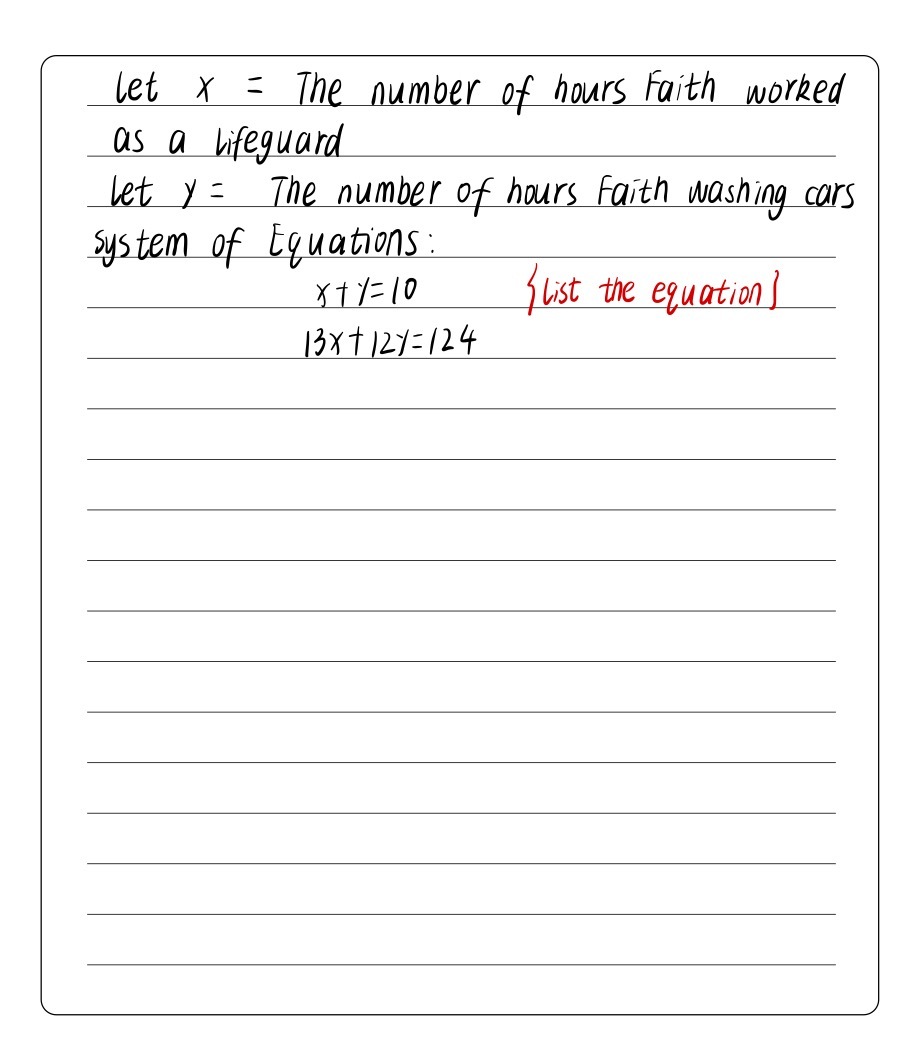 let x = The number of hours Faith worked
as a lifeguard
let y = The number of hours Faith washing cars
system of Equations:
x+y=10 {List the equation}
13x+12y=124